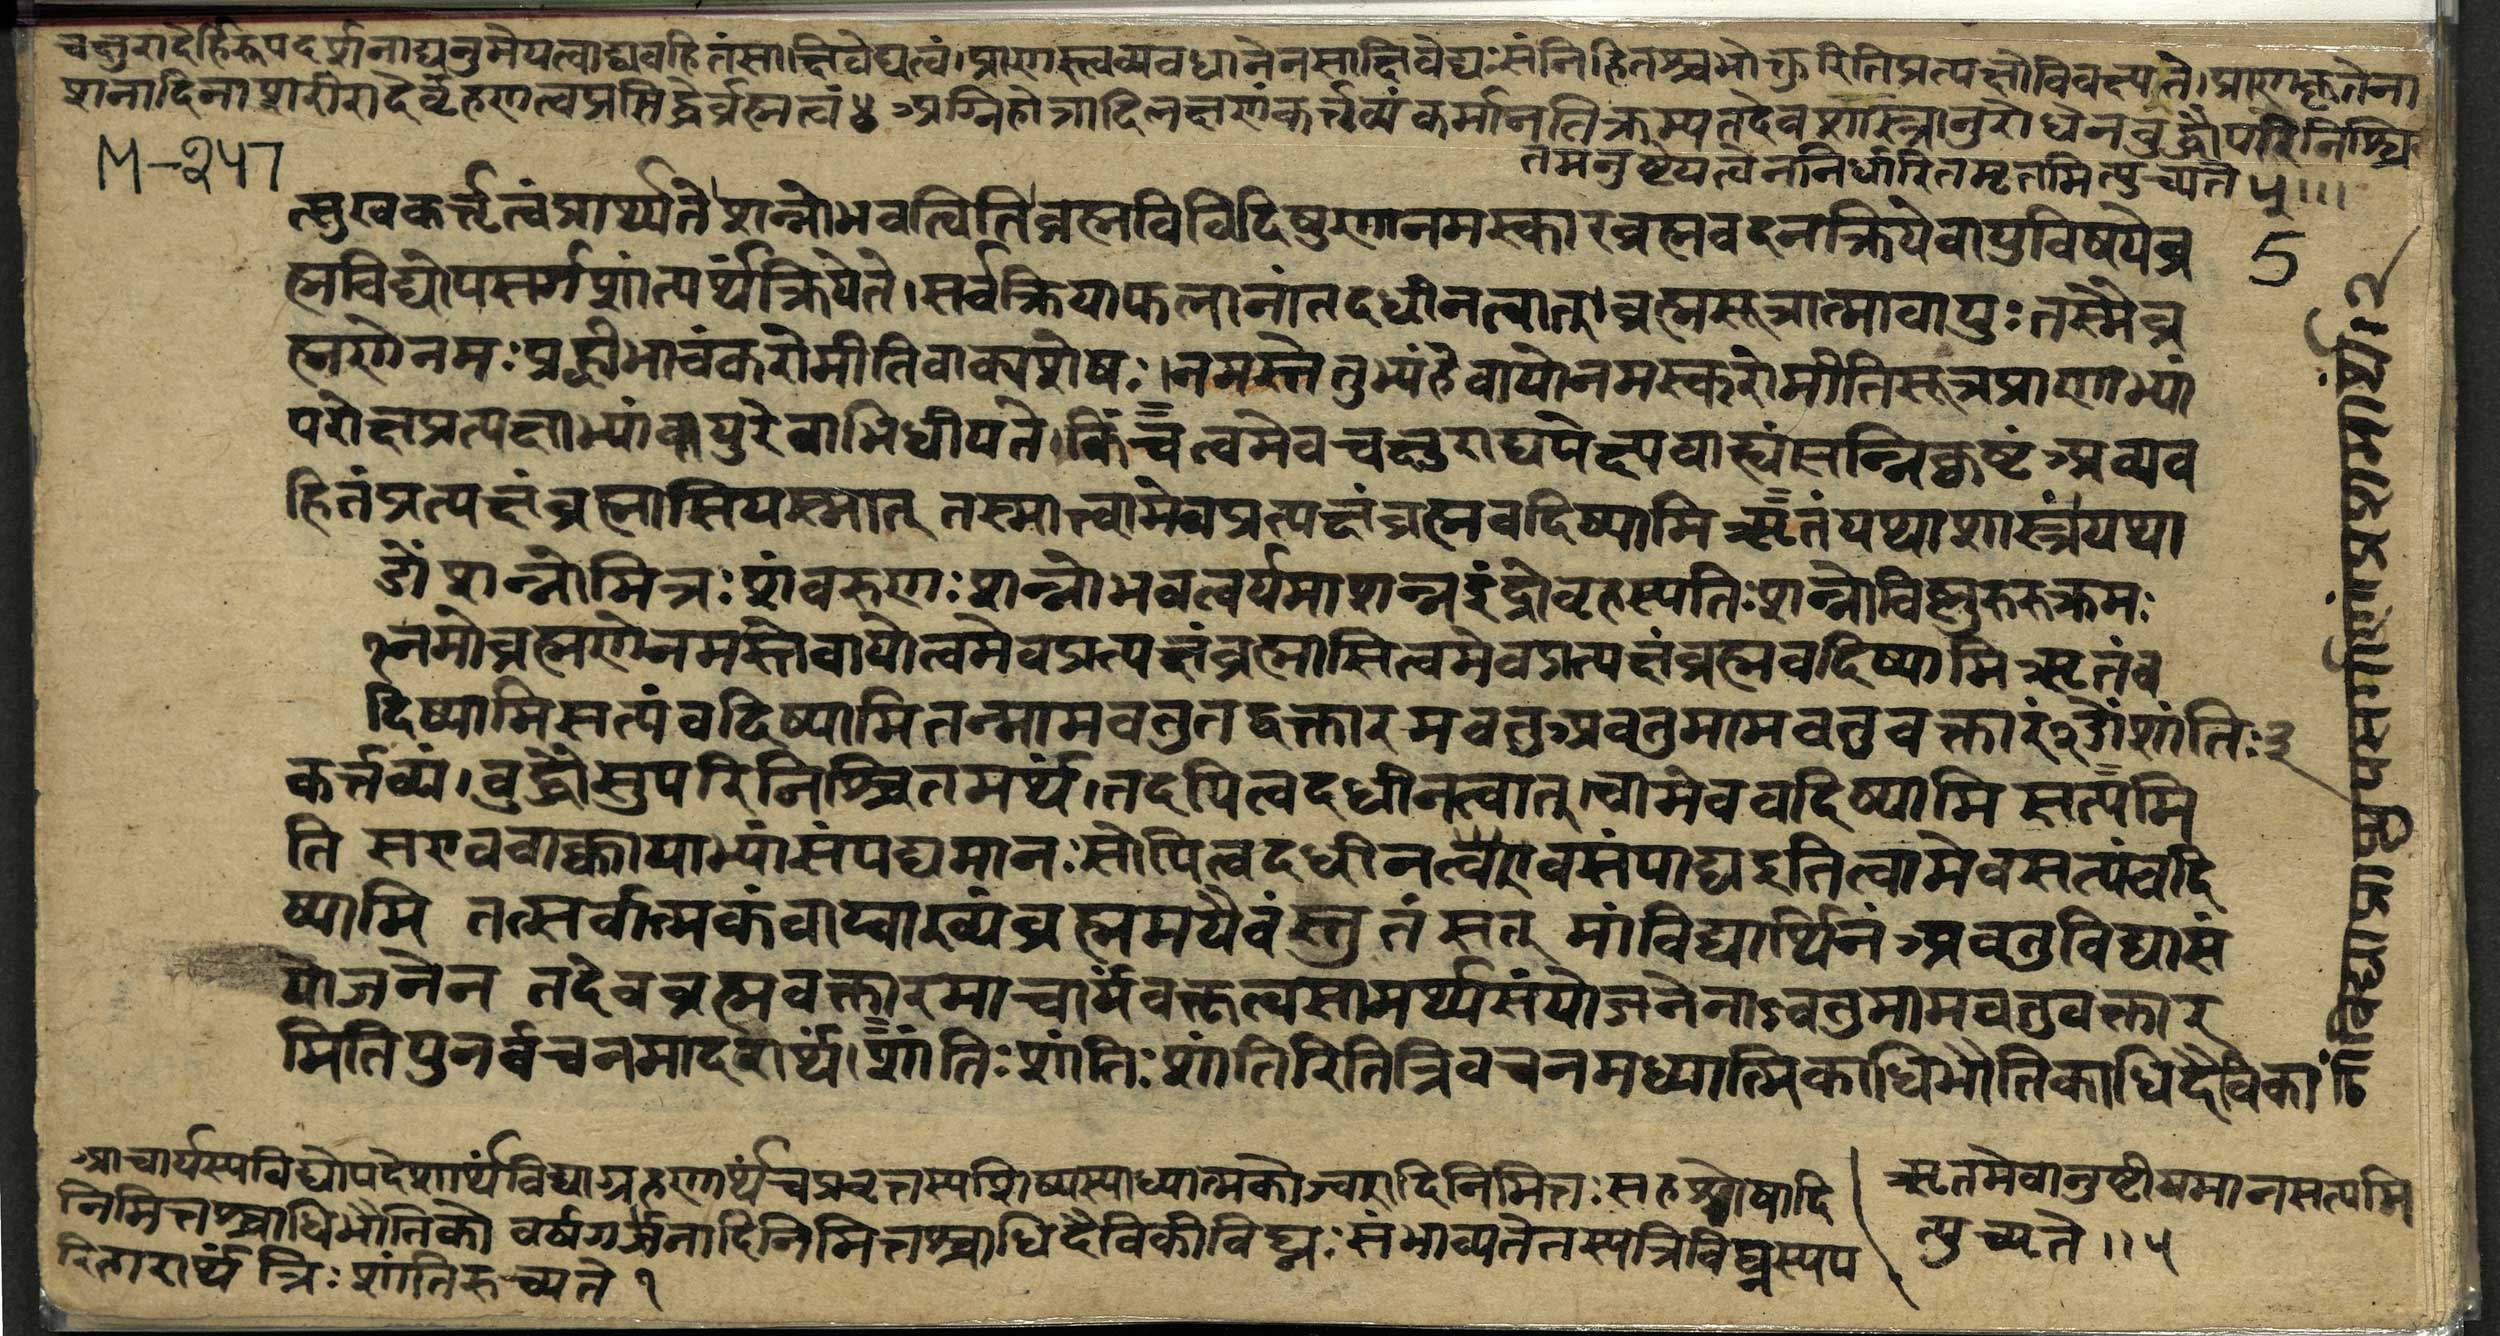 चक्षुरादेर्हि रूपदर्शनाद्यनुमेयत्वाद्व्यवहितं साक्षिवेद्यत्वं। प्राणस्त्वव्यवधानेन साक्षिवेद्यः संनिहितश्च भोक्तुरिति प्रत्यक्षो विवक्ष्यते। प्राणकृतेना
शनादिना शरीरादेर्वृंहणत्वप्रसिद्धेर्ब्रह्मत्वं ४ अग्निहोत्रादिलक्षणं कर्त्तव्यं कर्मानतिक्रम्य तदेव शास्त्रानुरोधेन बुद्धौ परिनिश्चि
तमनुष्ठेयत्वेन निर्धारितमृतमित्युच्यते ५।।।
M-247
त्सुखकर्त्तृत्वं प्रार्थ्यते शन्नो भवत्विति ब्रह्मविविदिषुणा नमस्कारब्रह्मवदनक्रिये वायुविषये ब्र
5
ह्मविद्योपसर्गशांत्यर्थं क्रियेते। सर्वक्रियाफलानां तदधीनत्वात्। ब्रह्मसूत्रात्मा वायुः तस्मै ब्र
ह्मणे नमः प्रह्वीभावं करोमीति वाक्यशेषः। नमस्ते तुभ्यं हे वायो नमस्करोमीति सूत्रप्राणाभ्यां
परोक्षप्रत्यक्षाभ्यां वायुरेवाभिधीयते। किंच त्वमेव चक्षुराद्यपेक्ष्य बाह्यं सन्निकृष्टं अव्यव
हितं प्रत्यक्षं ब्रह्मासि यस्मात् तस्मात्त्वामेव प्रत्यक्षं ब्रह्म वदिष्यामि ऋतं यथाशास्त्रं यथा
ॐ शन्नो मित्रः शं वरुणः शन्नो भवत्वर्यमा शन्न इंद्रो बृहस्पतिः शन्नो विष्णुरुरुक्रमः
१ नमो ब्रह्मणे नमस्ते वायो त्वमेव प्रत्यक्षं ब्रह्मासि त्वमेव प्रत्यक्षं ब्रह्म वदिष्यामि ऋतं व
दिष्यामि सत्यं वदिष्यामि तन्मामवतु तद्वक्तारमवतु अवतु मामवतु वक्तारं २ ॐ शांतिः ३
कर्त्तव्यं। बुद्धौ सुपरिनिश्चितमर्थं। तदपि त्वदधीनत्वात्। त्वामेव वदिष्यामि सत्यमि
ति स एव वाक्कायाभ्यां संपद्यमानः सोपि त्वदधीनत्व एव संपाद्य इति त्वामेव सत्यं वदि
ष्यामि तत्सर्वात्मकं वाय्वाख्यं ब्रह्म मयैवं स्तुतं सत् मां विद्यार्थिनं अवतु विद्यासं
योजनेन तदेव ब्रह्म वक्तारमाचार्यं वक्तृत्वसामर्थ्यसंयोजनेनाऽवतु मामवतु वक्तार
मिति पुनर्वचनमादरार्थं। शांतिः शांतिः शांतिरिति त्रिवचनमध्यात्मिकाधिभौतिकाधिदैविकां
आचार्यस्य विद्योपदेशार्थं विद्याग्रहणार्थं च प्रवृत्तस्य शिष्यस्याध्यात्मको ज्वरादिनिमित्तः
निमित्तश्चाधिभौतिको वर्षगर्जनादिनिमित्तश्चाधिदैविको विघ्नः संभाव्यते तस्य त्रिविघ्नस्य प
रिहारार्थं त्रिः शांतिरुच्यते १
ऋतमेवानुष्ठीयमान सत्यमि
त्युच्यते ।।५